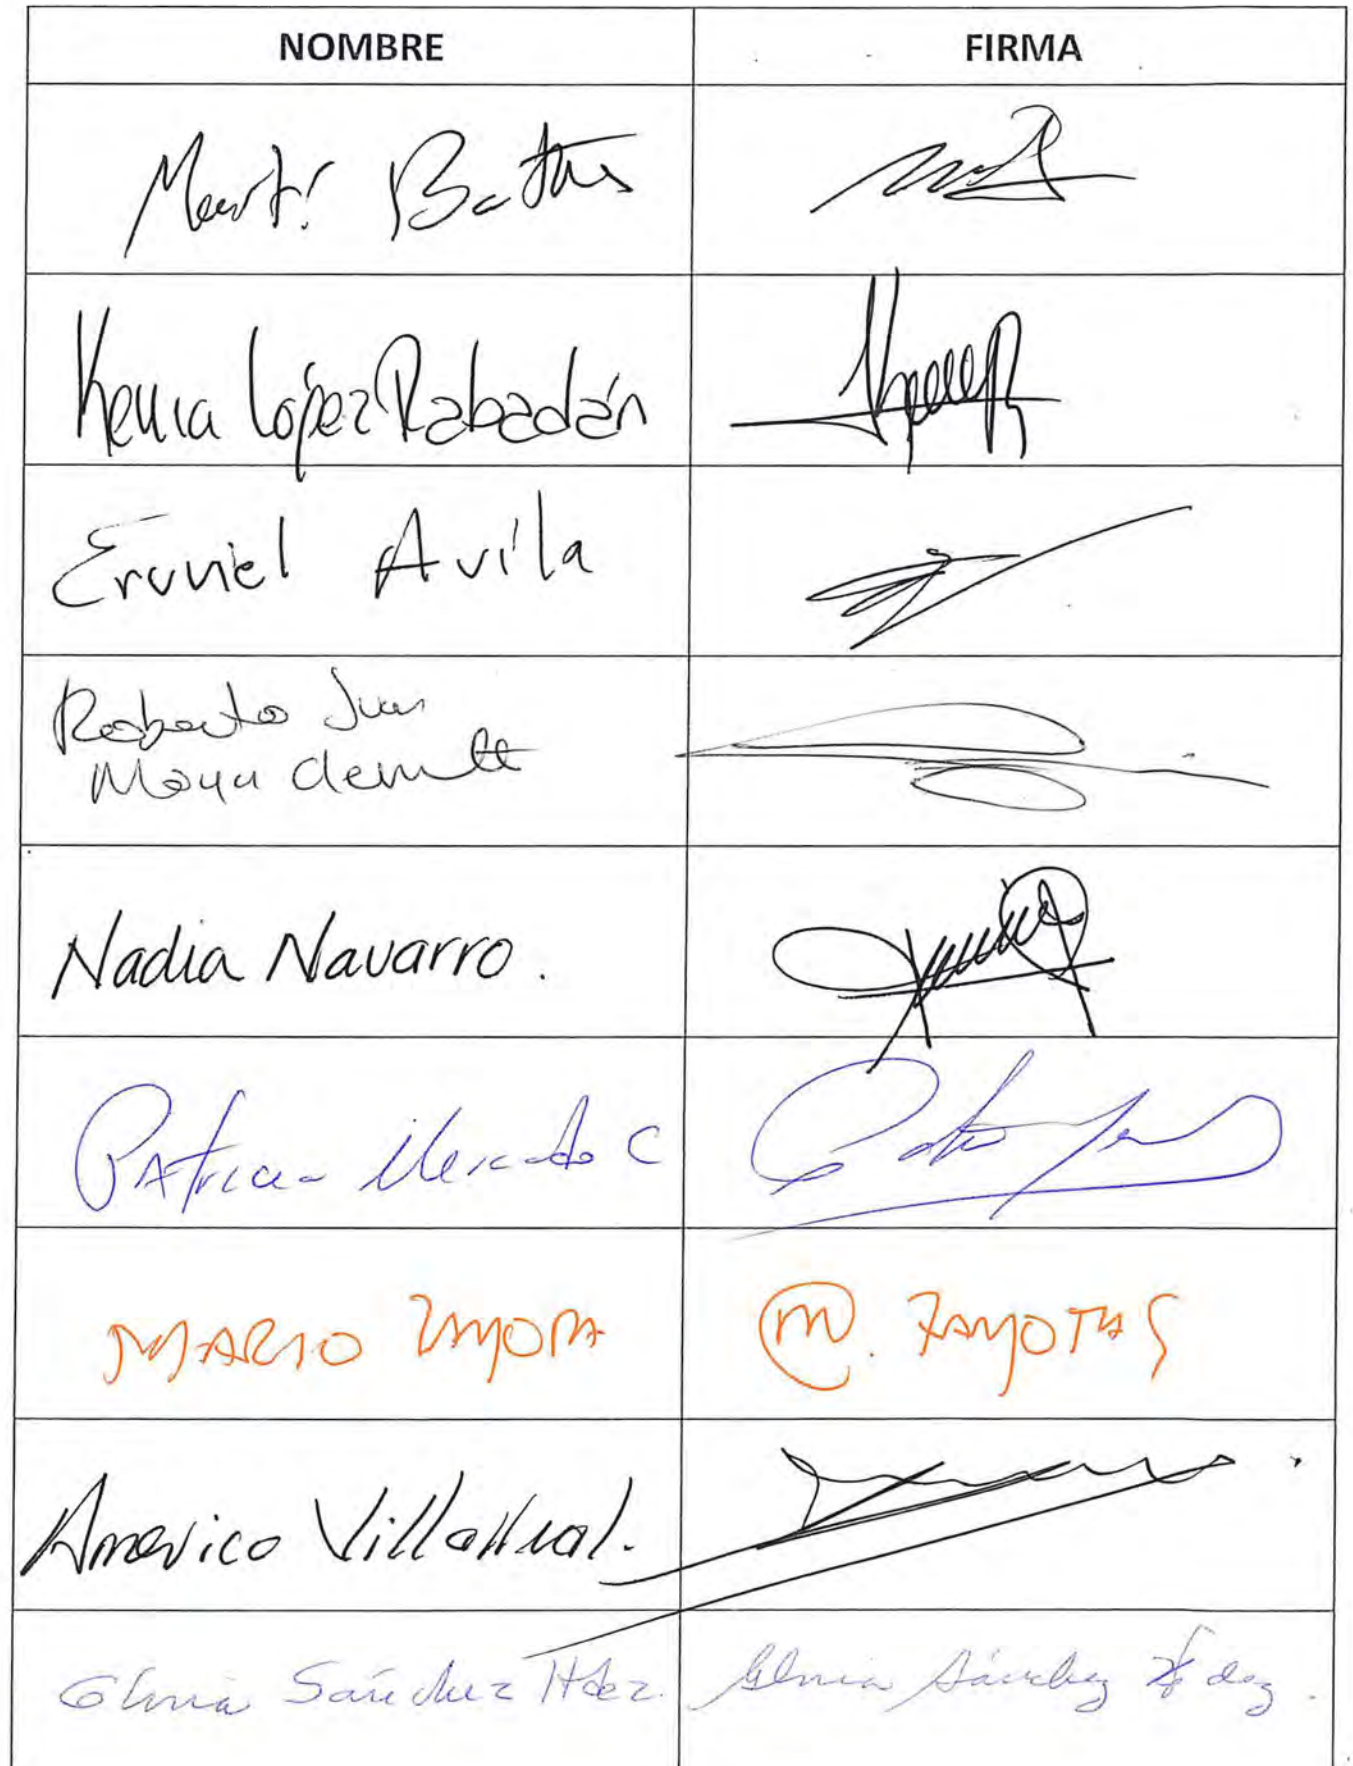 NOMBRE FIRMA
Martí Batres
Kenia López Rabadán
Eruviel Avila
Roberto Juan
Moya Clemente
Nadia Navarro.
Patricia Mercado C
MARIO ZAMORA M. ZAMOTAS
Americo Villarreal.
Gloria Sánchez Hdez. Gloria Sánchez Hdez.